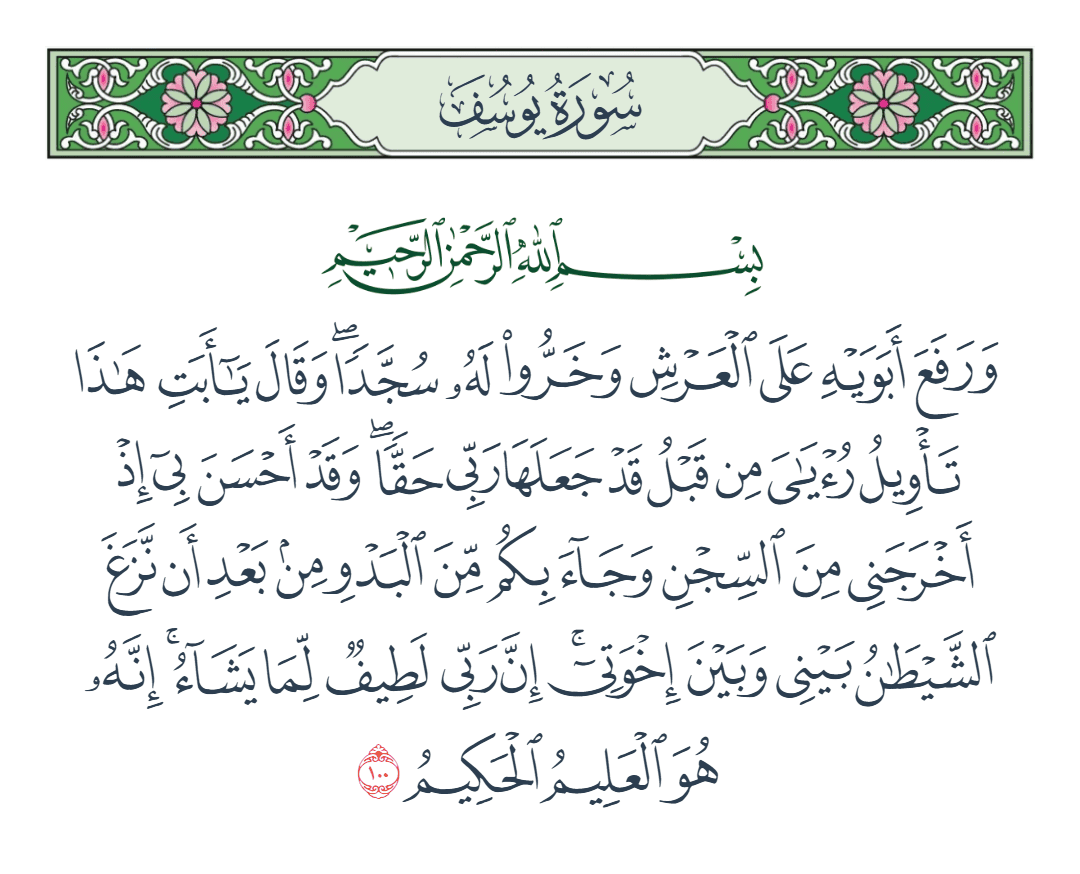 سُورَةُ يُوسُفَ
بِسْمِ ٱللَّهِ ٱلرَّحْمَٰنِ ٱلرَّحِيمِ
وَرَفَعَ أَبَوَيْهِ عَلَى ٱلْعَرْشِ وَخَرُّوا۟ لَهُۥ سُجَّدًۭا ۖ وَقَالَ يَـٰٓأَبَتِ هَـٰذَا
تَأْوِيلُ رُءْيَـٰىَ مِن قَبْلُ قَدْ جَعَلَهَا رَبِّى حَقًّۭا ۖ وَقَدْ أَحْسَنَ بِىٓ إِذْ
أَخْرَجَنِى مِنَ ٱلسِّجْنِ وَجَآءَ بِكُم مِّنَ ٱلْبَدْوِ مِنۢ بَعْدِ أَن نَّزَغَ
ٱلشَّيْطَـٰنُ بَيْنِى وَبَيْنَ إِخْوَتِىٓ ۚ إِنَّ رَبِّى لَطِيفٌۭ لِّمَا يَشَآءُ ۚ إِنَّهُۥ
هُوَ ٱلْعَلِيمُ ٱلْحَكِيمُ ١٠٠